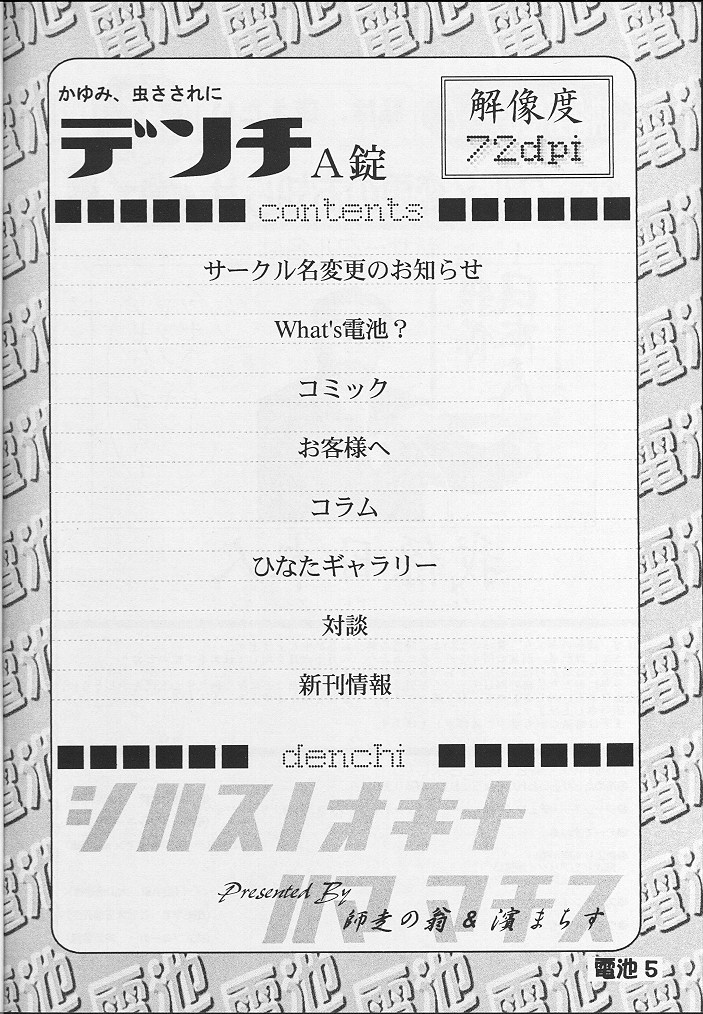 かゆみ、虫さされに
デンチA錠
解像度
72dpi
contents
サークル名変更のお知らせ
What's電池？
コミック
お客様へ
コラム
ひなたギャラリー
対談
新刊情報
denchi
シハスノオキナ
ハマ マチス
Presented By
師走の翁 & 濱まちす
電池 5